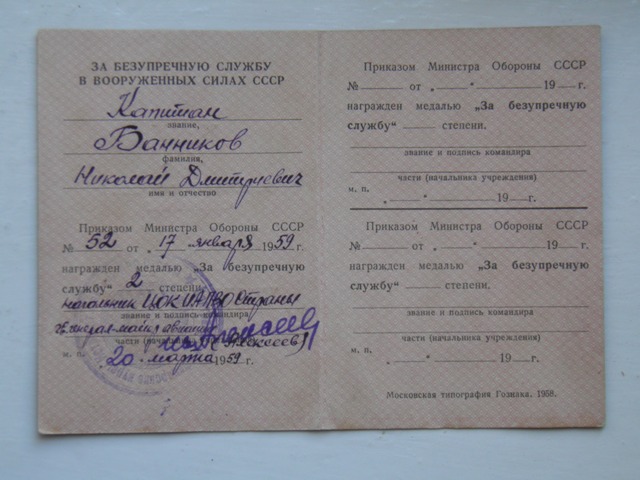 ЗА БЕЗУПРЕЧНУЮ СЛУЖБУ
В ВООРУЖЕННЫХ СИЛАХ СССР
Капитан
звание,
Банников
фамилия,
Николай Дмитриевич
имя и отчество
Приказом Министра Обороны СССР
№ 52 от „17" января 1959 г.
награжден медалью „За безупречную
службу" 2 степени.
начальник ЦОК ИА ПВО Страны
звание и подпись командира
Генерал-майор авиации
части (начальника
(Алексеев)
м. п. „20" марта 1959 г.
Приказом Министра Обороны СССР
№ от „ " 19 г.
награжден медалью „За безупречную
службу" степени.
звание и подпись командира
части (начальника учреждения)
м. п. „ " 19 г.
Приказом Министра Обороны СССР
№ от „ " 19 г.
награжден медалью „За безупречную
службу" степени.
звание и подпись командира
части (начальника учреждения)
м. п. „ " 19 г.
Московская типография Гознака. 1958.